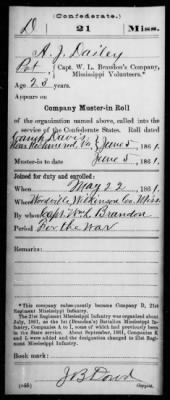 (Confederate.)
D 21 Miss.
A. J. Dailey
Pvt., Capt. W. L. Brandon's Company, Mississippi Volunteers.*
Age 23 years.
Appears on
Company Muster-in Roll
of the organization named above, called into the
service of the Confederate States. Roll dated
Camp Davis
Near Richmond, Va. June 5, 1861.
Muster-in to date June 5, 1861.
Joined for duty and enrolled:
When May 22, 1861.
Where Woodville Wilkinson Co. Miss.
By whom Capt. W. L. Brandon
Period For the War
Remarks:
*This company subsequently became Company D, 21st
Regiment Mississippi Infantry.
The 21st Regiment Mississippi Infantry was organized about
July, 1861, as the 1st (Brandon's) Battalion Mississippi In-
fantry, Companies A to I, some of which had previously been
in the State service. About September, 1861, Companies K
and L were added and the designation changed to 21st Regi-
ment Mississippi Infantry.
Book mark:
Copyist.